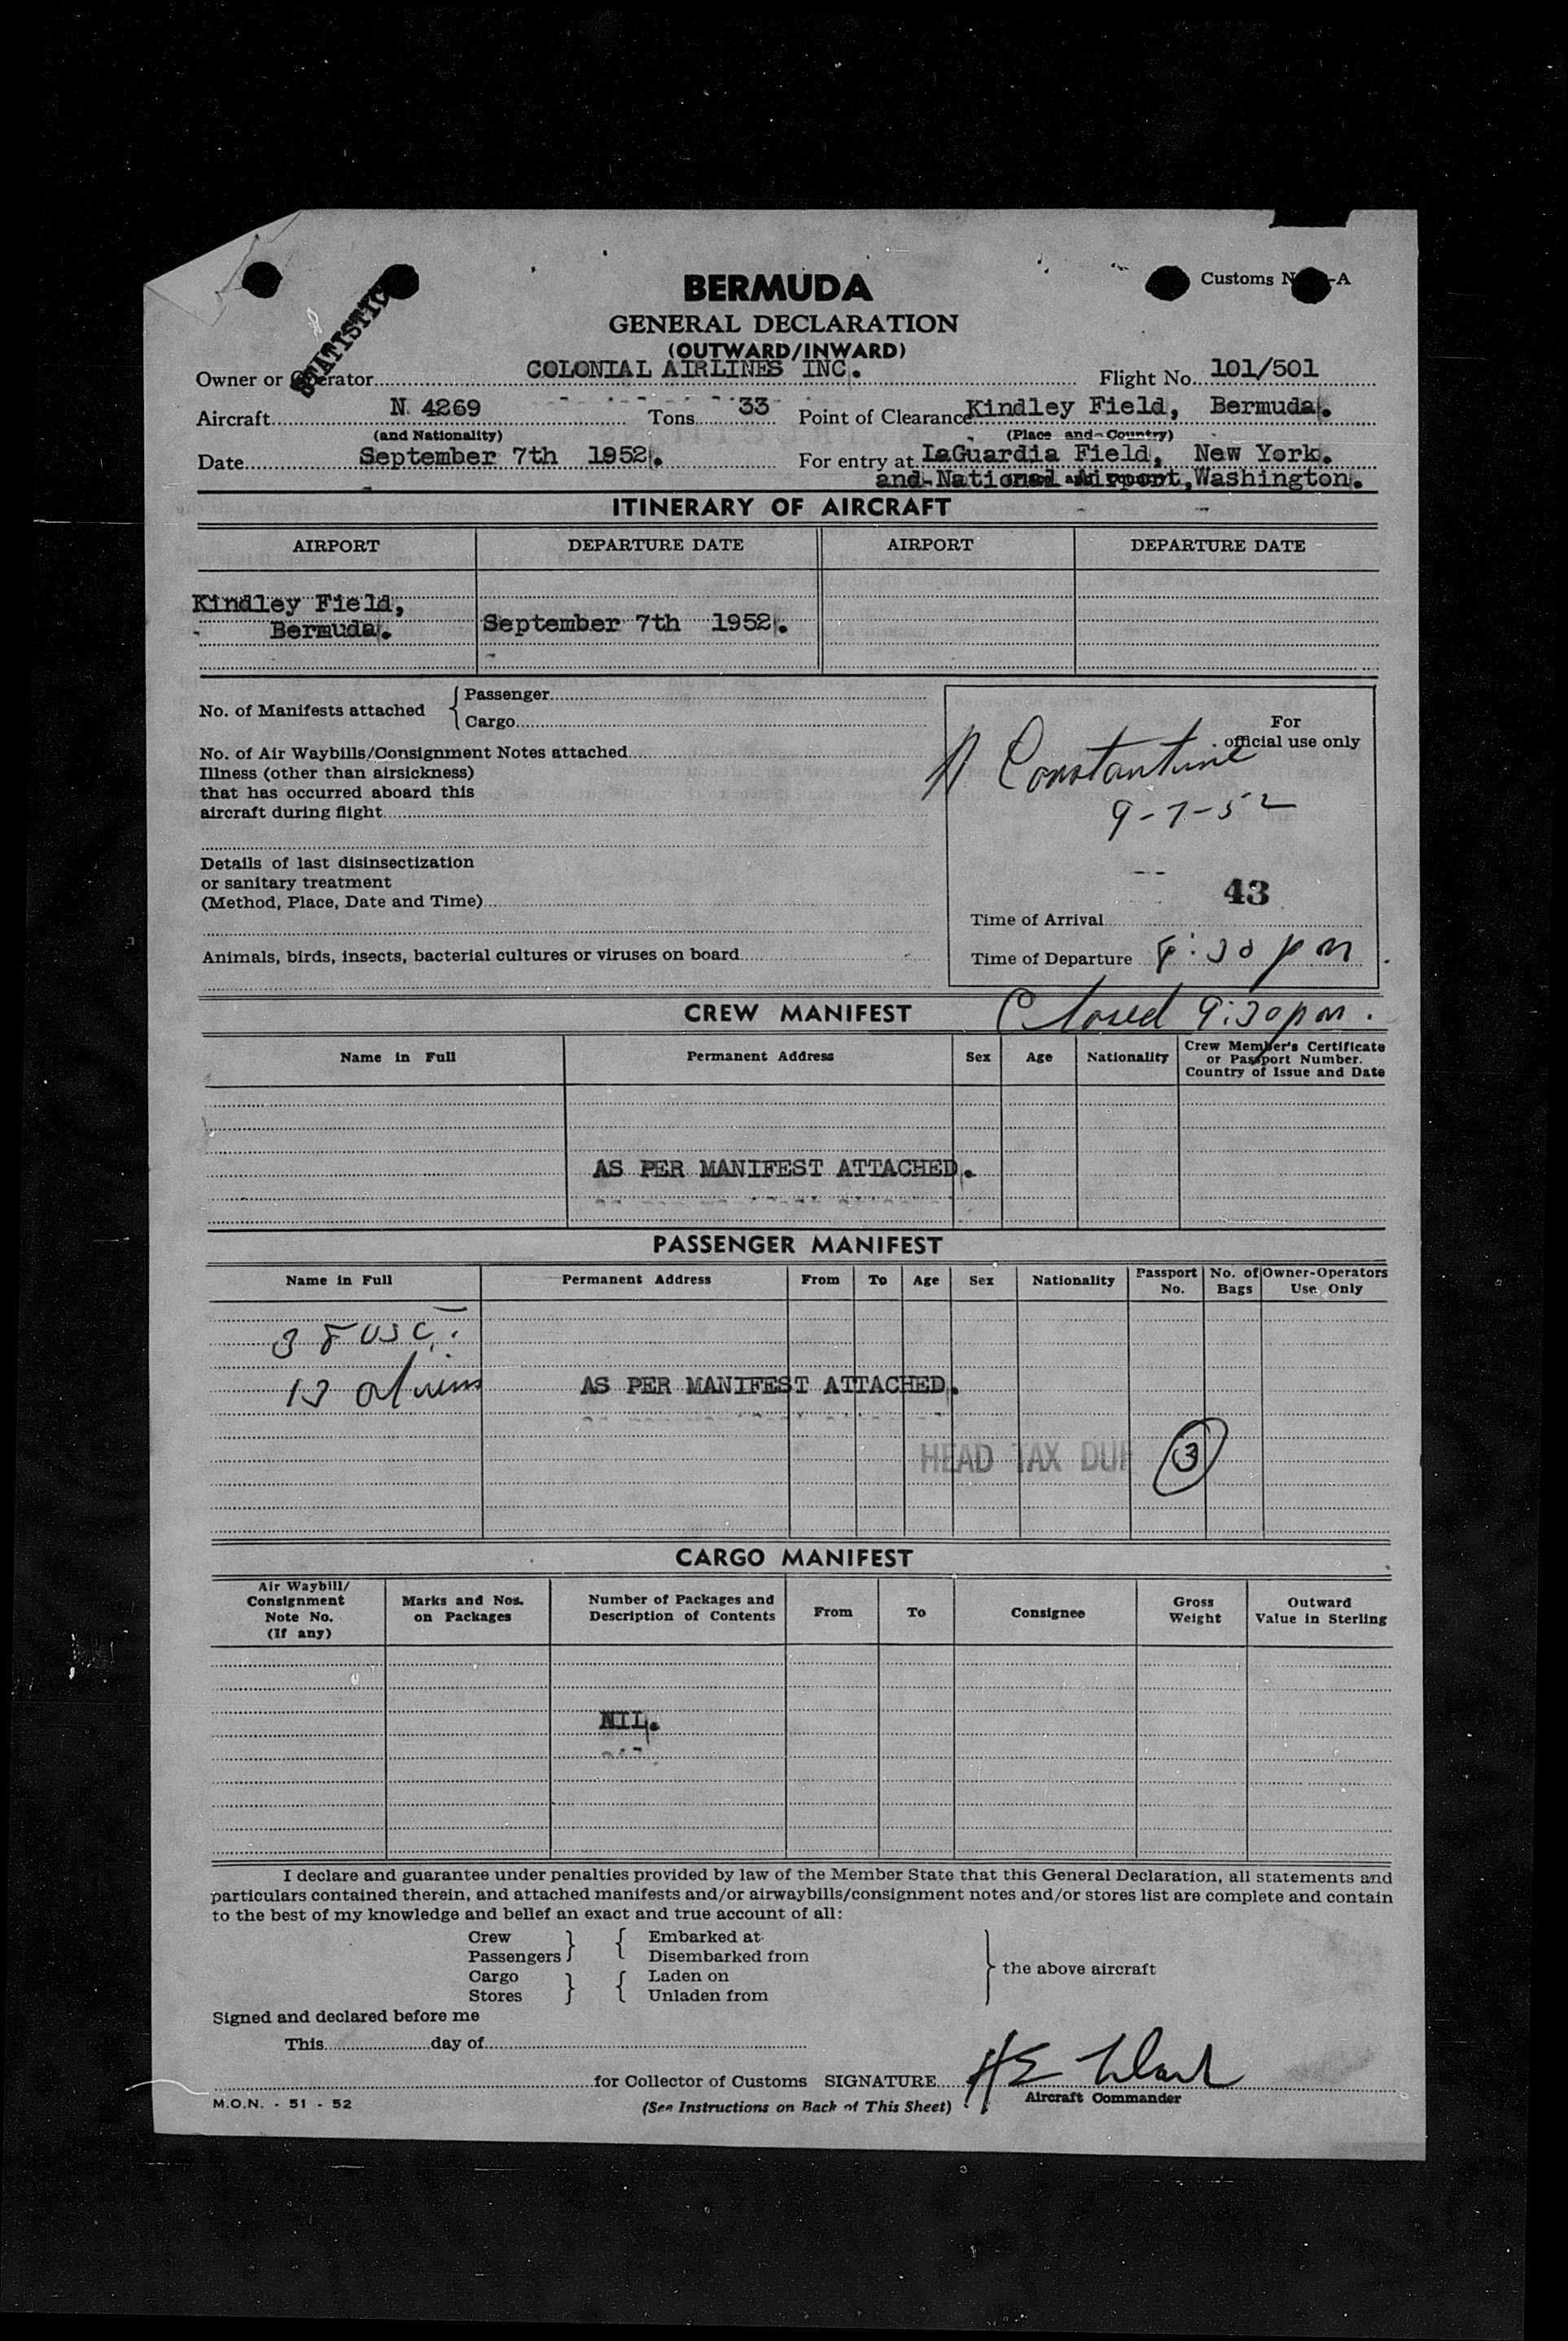 BERMUDA
Customs N -A
GENERAL DECLARATION
(OUTWARD/INWARD)
STATISTIC
Owner or Operator COLONIAL AIRLINES INC. Flight No. 101/501
Aircraft N 4269 Tons 33 Point of Clearance Kindley Field, Bermuda.
(and Nationality) (Place and Country)
Date September 7th 1952. For entry at LaGuardia Field, New York.
and National Airport, Washington.
ITINERARY OF AIRCRAFT
AIRPORT DEPARTURE DATE AIRPORT DEPARTURE DATE
Kindley Field,
Bermuda. September 7th 1952.
No. of Manifests attached { Passenger
Cargo
For
official use only
No. of Air Waybills/Consignment Notes attached
Illness (other than airsickness)
that has occurred aboard this
aircraft during flight
Constantine
9-7-52
Details of last disinsectization
or sanitary treatment
(Method, Place, Date and Time)
43
Time of Arrival
Animals, birds, insects, bacterial cultures or viruses on board
Time of Departure 8:30 pm
CREW MANIFEST Closed 9:30 pm.
Name in Full Permanent Address Sex Age Nationality Crew Member's Certificate
or Passport Number.
Country of Issue and Date
AS PER MANIFEST ATTACHED.
PASSENGER MANIFEST
Name in Full Permanent Address From To Age Sex Nationality Passport No. No. of Bags Owner-Operators Use Only
38 USC.
13 aliens AS PER MANIFEST ATTACHED.
HEAD TAX DUE 3
CARGO MANIFEST
Air Waybill/
Consignment
Note No.
(If any)
Marks and Nos.
on Packages
Number of Packages and
Description of Contents
From To Consignee
Gross
Weight
Outward
Value in Sterling
NIL.
I declare and guarantee under penalties provided by law of the Member State that this General Declaration, all statements and
particulars contained therein, and attached manifests and/or airwaybills/consignment notes and/or stores list are complete and contain
to the best of my knowledge and belief an exact and true account of all:
Crew } { Embarked at
Passengers Disembarked from
Cargo } { Laden on
Stores Unladen from
} the above aircraft
Signed and declared before me
This day of
for Collector of Customs SIGNATURE H E
Aircraft Commander
M.O.N. - 51 - 52 (See Instructions on Back of This Sheet)